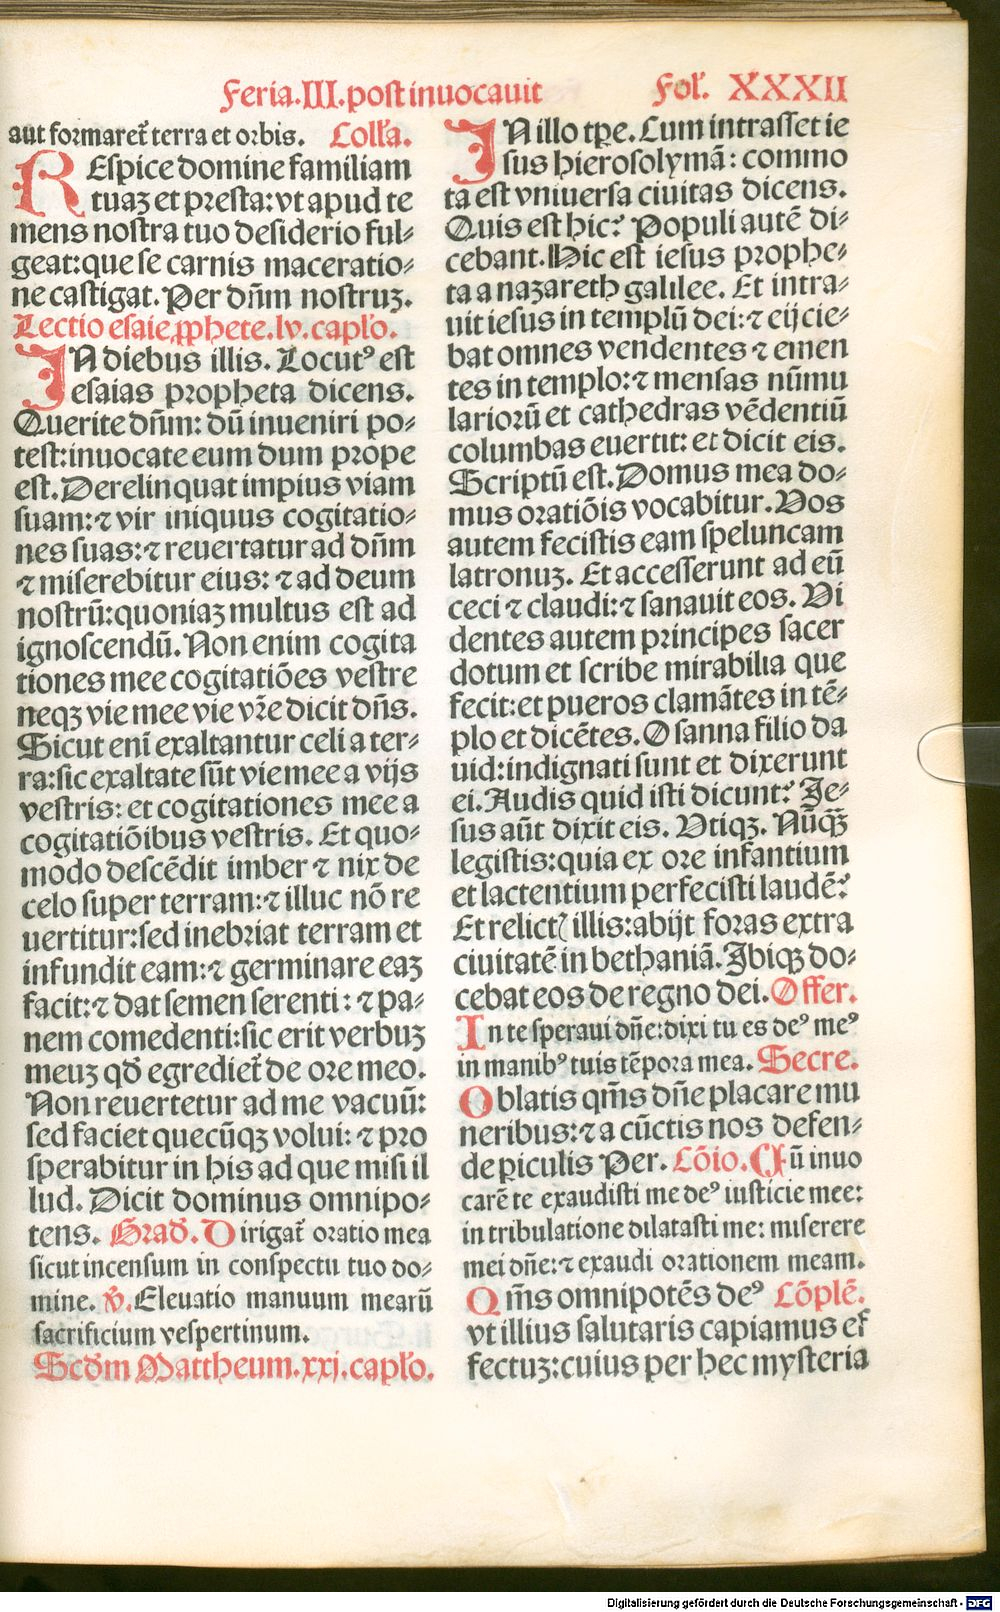 Feria.III.post inuocauit Fol'. XXXII
aut formaret᷑ terra et orbis. Coll'a.
REspice domine familiam
tuaʒ et presta: vt apud te
mens nostra tuo desiderio ful⸗
geat: que se carnis maceratio⸗
ne castigat. Per dn̄m nostruʒ.
Lectio esaie ꝓphete. lv. capl'o.
IN diebus illis. Locutꝰ est
esaias propheta dicens.
Querite dn̄m: dū inueniri po⸗
test: inuocate eum dum prope
est. Derelinquat impius viam
suam: ⁊ vir iniquus cogitatio⸗
nes suas: ⁊ reuertatur ad dn̄m
⁊ miserebitur eius: ⁊ ad deum
nostrū: quoniaʒ multus est ad
ignoscendū. Non enim cogita
tiones mee cogitatiōes vestre
neqʒ vie mee vie vr̄e dicit dn̄s.
Sicut enī exaltantur celi a ter⸗
ra: sic exaltate sūt vie mee a vijs
vestris: et cogitationes mee a
cogitatiōibus vestris. Et quo⸗
mōdo descēdit imber ⁊ nix de
celo super terram: ⁊ illuc nō re
uertitur: sed inebriat terram et
infundit eam: ⁊ germinare eaʒ
facit: ⁊ dat semen serenti: ⁊ pa⸗
nem comedenti: sic erit verbuʒ
meuʒ qd̄ egrediet᷑ de ore meo.
Non reuertetur ad me vacuū:
sed faciet quecūqʒ volui: ⁊ pro
sperabitur in his ad que misi il
lud. Dicit dominus omnipo⸗
tens. Grad̄. Dirigat᷑ oratio mea
sicut incensum in conspectu tuo do⸗
mine. V̄. Eleuatio manuum mearū
sacrificium vespertinum.
Scd̄m Mattheum. xxj. capl'o.
IN illo tp̄e. Cum intrasset ie
sus hierosolymā: commo
ta est vniuersa ciuitas dicens.
Quis est hic? Populi autē di⸗
cebant. Hic est iesus prophe⸗
ta a nazareth galilee. Et intra⸗
uit iesus in templū dei: ⁊ eijcie⸗
bat omnes vendentes ⁊ emen
tes in templo: ⁊ mensas nūmu
lariorū et cathedras vēdentiū
columbas euertit: et dicit eis.
Scriptū est. Domus mea do⸗
mus oratiōis vocabitur. Vos
autem fecistis eam speluncam
latronuʒ. Et accesserunt ad eū
ceci ⁊ claudi: ⁊ sanauit eos. Vi
dentes autem principes sacer
dotum et scribe mirabilia que
fecit: et pueros clamātes in tē⸗
plo et dicētes. Osanna filio da
uid: indignati sunt et dixerunt
ei. Audis quid isti dicunt? Ie⸗
sus aūt dixit eis. Vtiqʒ. Nūqʒ
legistis: quia ex ore infantium
et lactentium perfecisti laudē?
Et relictꝭ illis: abijt foras extra
ciuitatē in bethaniā. Ibiqʒ do⸗
cebat eos de regno dei. Offer.
In te speraui dn̄e: dixi tu es deꝰ meꝰ
in manibꝰ tuis tēpora mea. Secre.
Oblatis qm̄s dn̄e placare mu
neribus: ⁊ a cūctis nos defen⸗
de ꝑiculis Per. Cōio. Cū inuo
carē te exaudisti me deꝰ iusticie mee:
in tribulatione dilatasti me: miserere
mei dn̄e: ⁊ exaudi orationem meam.
Qm̄s omnipotēs deꝰ Cōplē.
vt illius salutaris capiamus ef
fectuʒ: cuius per hec mysteria
Digitalisierung gefördert durch die Deutsche Forschungsgemeinschaft - DFG